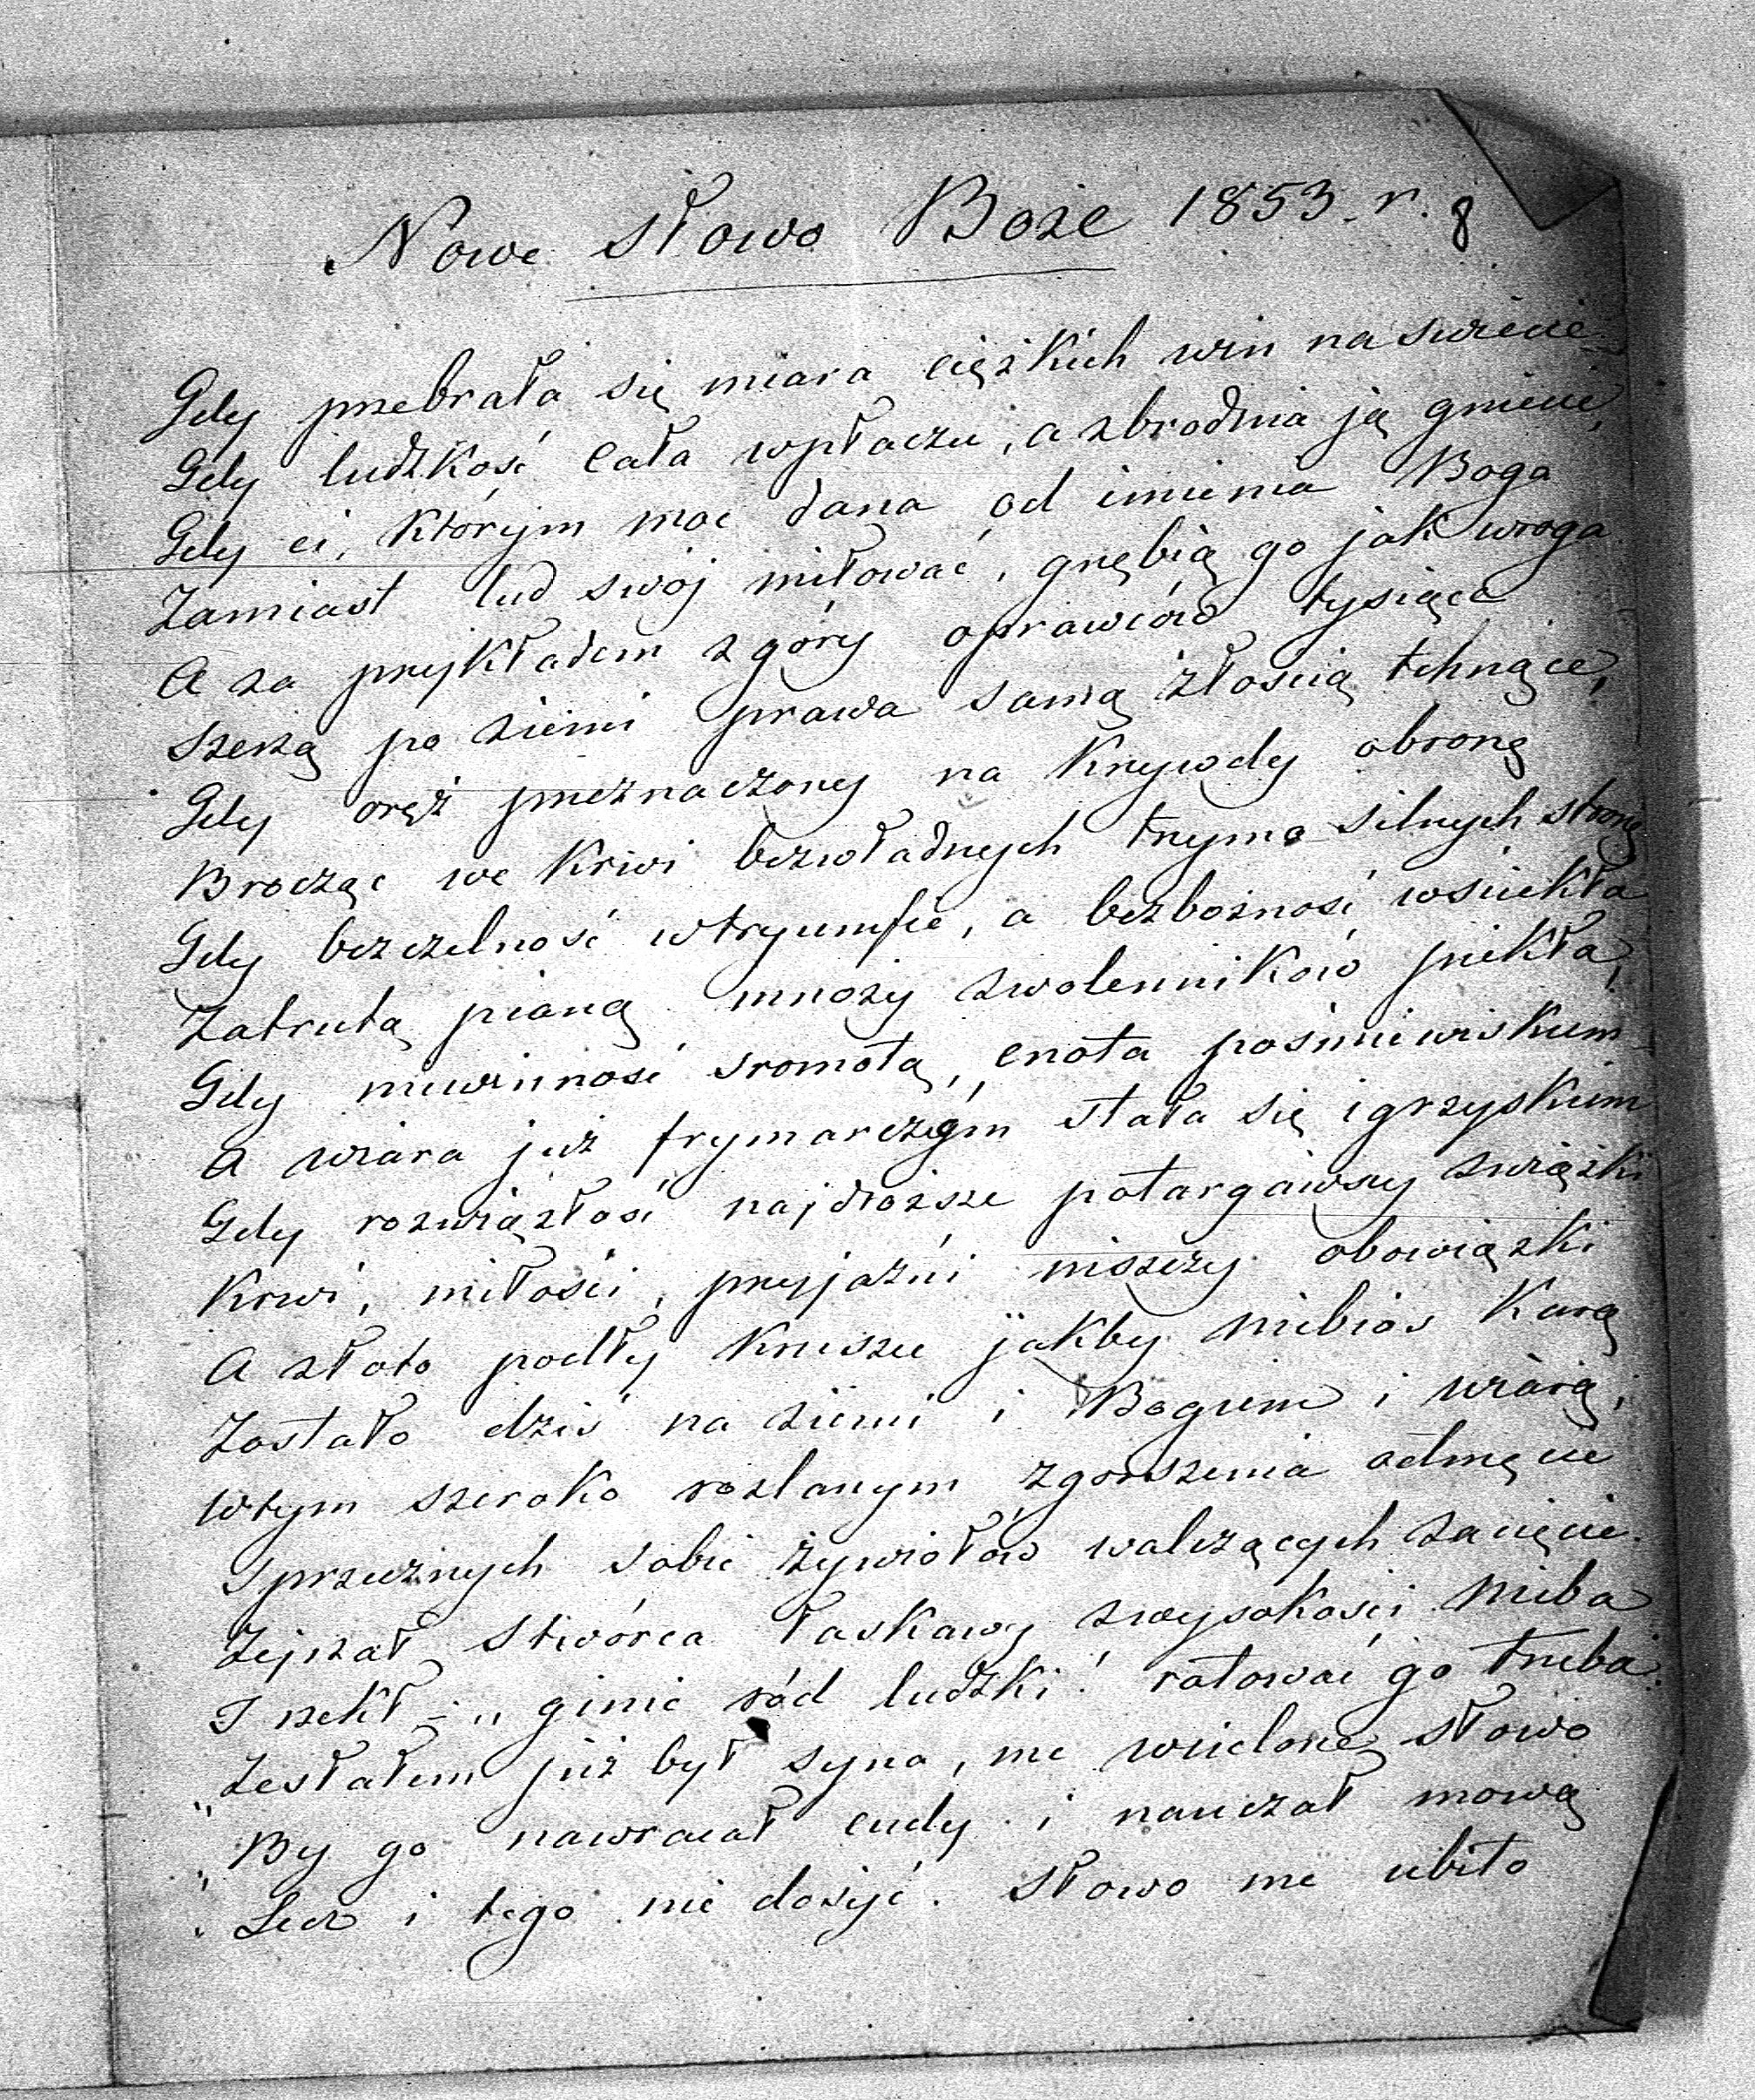 Nowe Słowo Boże 1853. r. 8
Gdy przebrała się miara ciężkich win na świecie,
Gdy ludzkość cała wpłaczu, a zbrodnia ją gniecie,
Gdy ci, którym moc dana od imienia Boga
Zamiast lud swój miłować, gnębią go jak wroga
A za przykładem z góry oprawców tysiące
Szerzą po ziemi prawa samą złością tchnące,
Gdy oręż przeznaczony na krzywdy obronę
Brocząc we krwi bezwładnych trzyma silnych stronę
Gdy bezczelność wtryumfie, a bezbożność wściekła
Zatrutą pianą mnoży zwolenników piekła,
Gdy niewinność sromotą, cnota pośmiewiskiem
A wiara już frymarczym stała się igrzyskiem
Gdy rozwiązłość najdroższe potargawszy związki
Krwi, miłości, przyjaźni niszczy obowiązki
A złoto podły kruszec jakby niebios karą
Zostało dziś na ziemi i Bogiem i wiarą,
Wtym szeroko rozlanym zgorszenia odmęcie
Sprzecznych sobie żywiołów walczących zacięcie.
Zejrzał Stwórca łaskawy zwysokości nieba
I rzekł – „ginie ród ludzki! ratować go trzeba.
„Zesłałem już był syna, me wcielone słowo
„By go nawracał cudy i nauczał mową
„Lecz i tego nie dosyć. Słowo me ubito